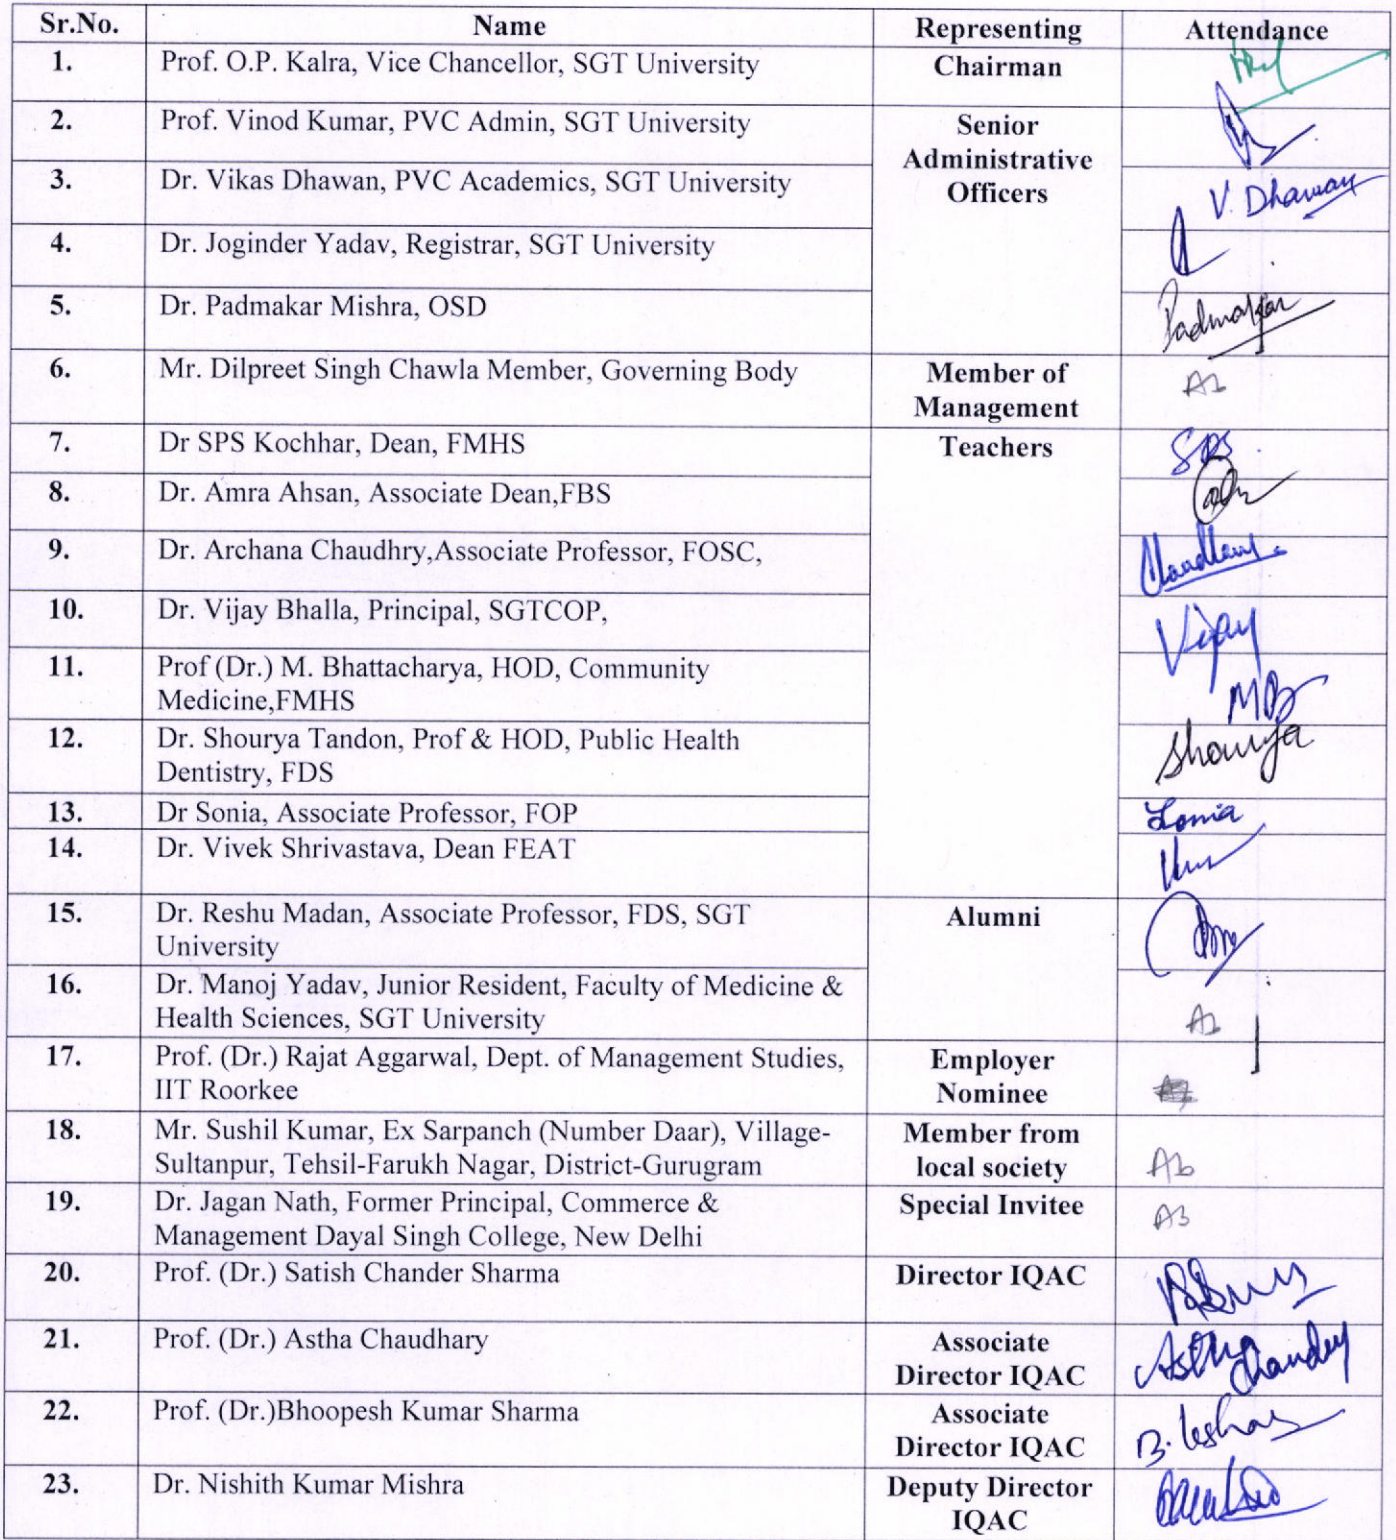 Sr.No. Name Representing Attendance
1. Prof. O.P. Kalra, Vice Chancellor, SGT University Chairman
2. Prof. Vinod Kumar, PVC Admin, SGT University Senior
Administrative
Officers
3. Dr. Vikas Dhawan, PVC Academics, SGT University V. Dhawan
4. Dr. Joginder Yadav, Registrar, SGT University
5. Dr. Padmakar Mishra, OSD Padmakar
6. Mr. Dilpreet Singh Chawla Member, Governing Body Member of Ab
Management
7. Dr SPS Kochhar, Dean, FMHS Teachers SPS
8. Dr. Amra Ahsan, Associate Dean,FBS
9. Dr. Archana Chaudhry,Associate Professor, FOSC,
10. Dr. Vijay Bhalla, Principal, SGTCOP, Vijay
11. Prof (Dr.) M. Bhattacharya, HOD, Community
Medicine,FMHS MB
12. Dr. Shourya Tandon, Prof & HOD, Public Health Shourya
Dentistry, FDS
13. Dr Sonia, Associate Professor, FOP Sonia
14. Dr. Vivek Shrivastava, Dean FEAT
15. Dr. Reshu Madan, Associate Professor, FDS, SGT Alumni
University
16. Dr. Manoj Yadav, Junior Resident, Faculty of Medicine &
Health Sciences, SGT University Ab
17. Prof. (Dr.) Rajat Aggarwal, Dept. of Management Studies, Employer
IIT Roorkee Nominee
18. Mr. Sushil Kumar, Ex Sarpanch (Number Daar), Village- Member from
Sultanpur, Tehsil-Farukh Nagar, District-Gurugram local society Ab
19. Dr. Jagan Nath, Former Principal, Commerce & Special Invitee Ab
Management Dayal Singh College, New Delhi
20. Prof. (Dr.) Satish Chander Sharma Director IQAC
21. Prof. (Dr.) Astha Chaudhary Associate Astha
Director IQAC Chaudhary
22. Prof. (Dr.)Bhoopesh Kumar Sharma Associate
Director IQAC
23. Dr. Nishith Kumar Mishra Deputy Director
IQAC